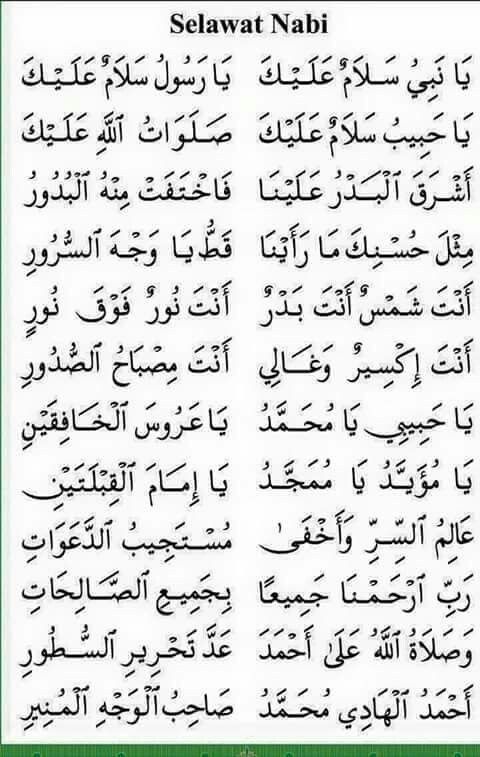 Selawat Nabi
يَا نَبِيُ سَلَامٌ عَلَيْكَ يَا رَسُولُ سَلَامٌ عَلَيْكَ
يَا حَبِيبُ سَلَامٌ عَلَيْكَ صَلَوَاتُ اللَّهِ عَلَيْكَ
أَشْرَقَ الْبَدْرُ عَلَيْنَا فَاخْتَفَتْ مِنْهُ الْبُدُورُ
مِثْلَ حُسْنِكَ مَا رَأَيْنَا قَطُّ يَا وَجْهَ السُّرُورِ
أَنْتَ شَمْسٌ أَنْتَ بَدْرٌ أَنْتَ نُورٌ فَوْقَ نُورٍ
أَنْتَ إِكْسِيرٌ وَغَالِي أَنْتَ مِصْبَاحُ الصُّدُورِ
يَا حَبِيبِي يَا مُحَمَّدُ يَا عَرُوسَ الْخَافِقَيْنِ
يَا مُؤَيَّدُ يَا مُمَجَّدُ يَا إِمَامَ الْقِبْلَتَيْنِ
عَالِمُ السِّرِّ وَأَخْفَى مُسْتَجِيبُ الدَّعَوَاتِ
رَبِّ ارْحَمْنَا جَمِيعًا بِجَمِيعِ الصَّالِحَاتِ
وَصَلَاةُ اللَّهُ عَلَى أَحْمَدَ عَدَّ تَحْرِيرِ السُّطُورِ
أَحْمَدُ الْهَادِي مُحَمَّدُ صَاحِبُ الْوَجْهِ الْمُنِيرِ